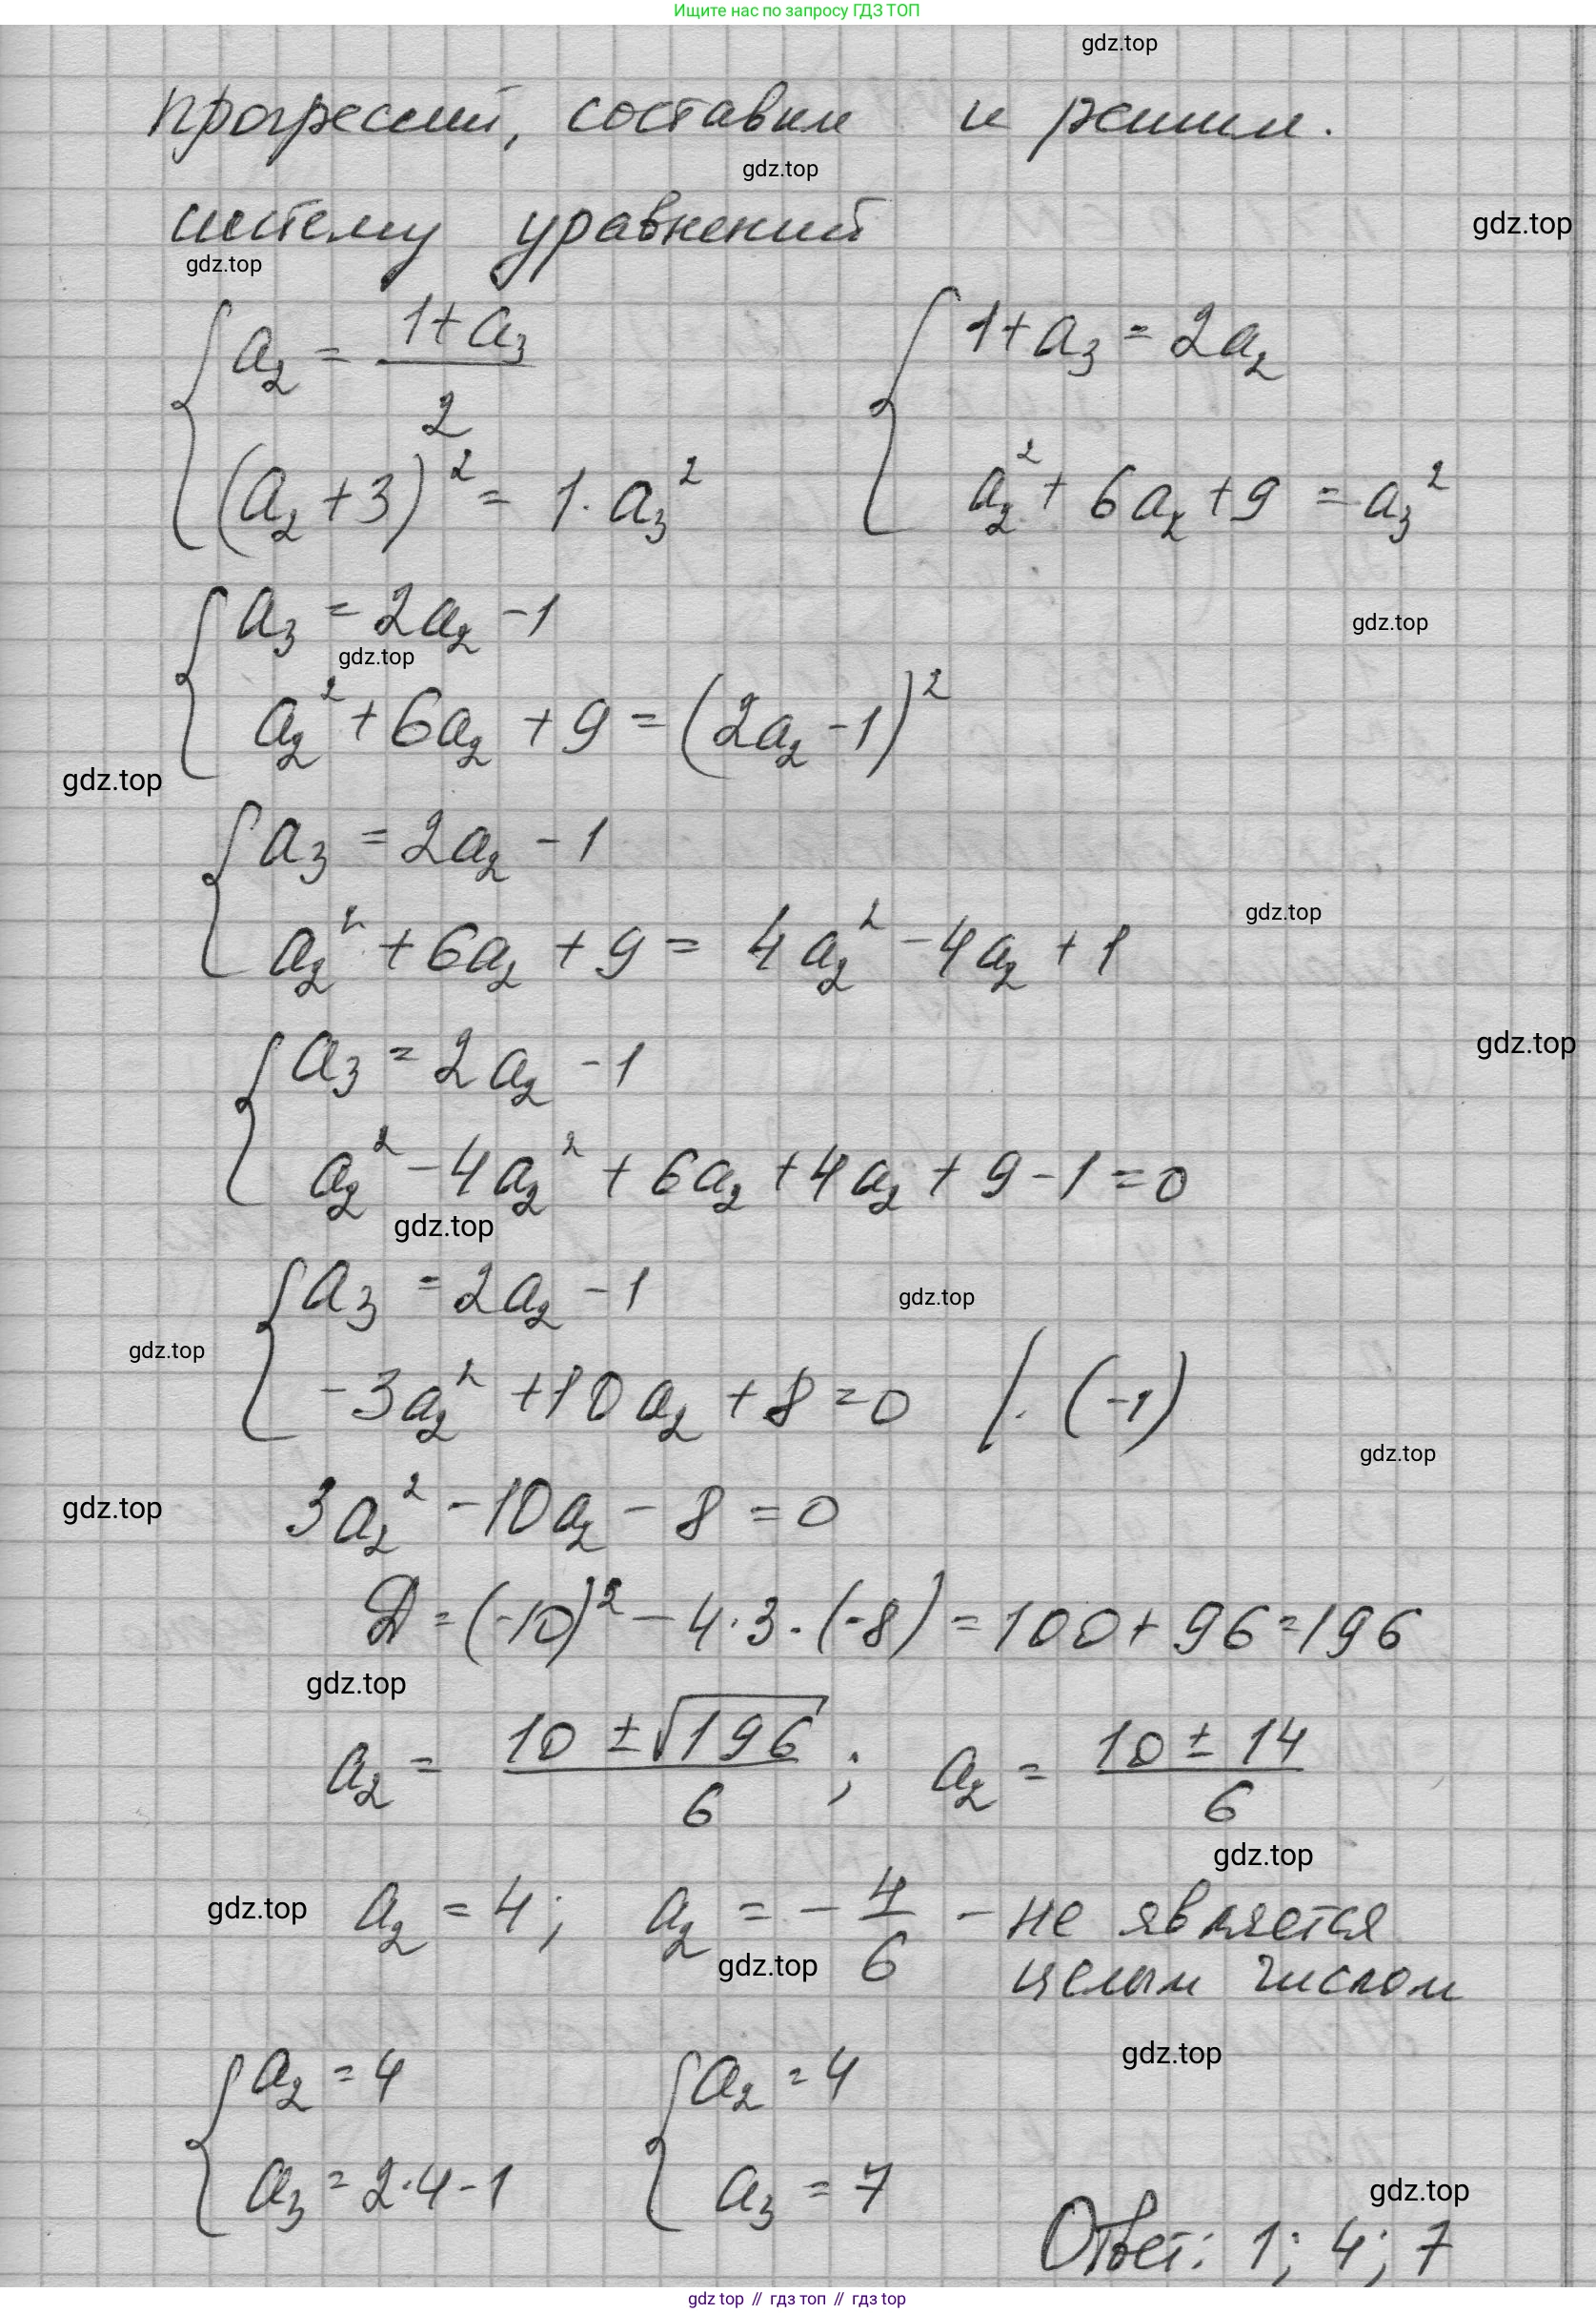 Ищите нас по запросу ГДЗ ТОП
gdz.top
прогрессий, составим и решим.
gdz.top
систему уравнений
gdz.top
gdz.top
{ a₂ = (1+a₃)/2 { 1+a₃ = 2a₂
(a₂+3)² = 1·a₃² a₂²+6a₂+9 = a₃²
{ a₃ = 2a₂ -1
gdz.top
gdz.top
a₂²+6a₂+9 = (2a₂-1)²
gdz.top
{ a₃ = 2a₂ -1
gdz.top
a₂²+6a₂+9 = 4a₂²-4a₂+1
gdz.top
{ a₃ = 2a₂ -1
a₂²-4a₂²+6a₂+4a₂+9-1=0
gdz.top
{ a₃ = 2a₂ -1
gdz.top
gdz.top
-3a₂²+10a₂+8=0 /·(-1)
gdz.top
gdz.top
3a₂²-10a₂-8=0
D=(-10)²-4·3·(-8)=100+96=196
gdz.top
a₂ = (10±√196)/6; a₂ = (10±14)/6
gdz.top
gdz.top
a₂=4; a₂=-4/6 - не является
gdz.top
целым числом
gdz.top
{ a₂=4 { a₂=4
a₃=2·4-1 a₃=7
gdz.top
Ответ: 1; 4; 7
gdz top // гдз топ // гдз top